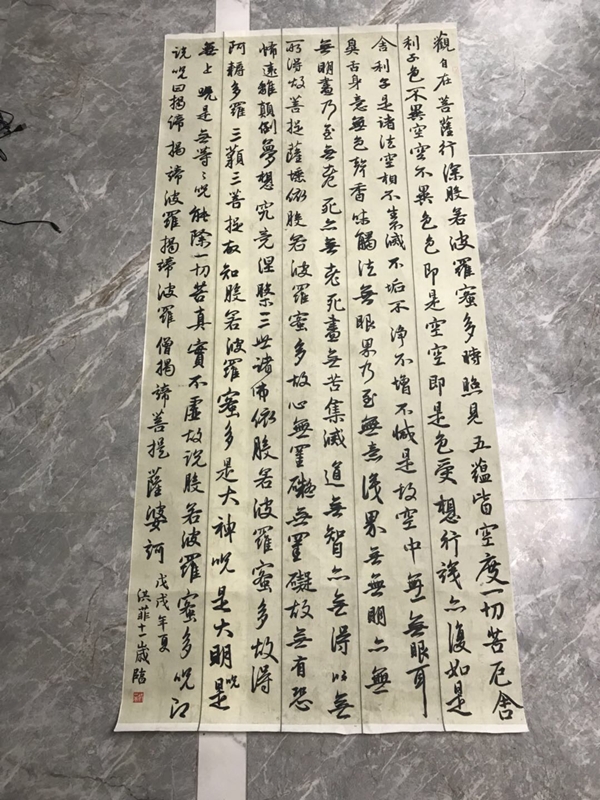 觀自在菩薩行深般若波羅蜜多時照見五蘊皆空度一切苦厄舍
利子色不異空空不異色色即是空空即是色受想行識亦復如是
舍利子是諸法空相不滅不垢不淨不增不減是故空中無無眼耳
鼻舌身意無色聲香味觸法無眼界乃至無意識界無無明亦無
無明盡乃至無老死亦無老死盡無苦集滅道無智亦無得以無
所得故菩提薩埵依般若波羅蜜多故心無罣礙無罣礙故無有恐
怖遠離顛倒夢想究竟涅槃三世諸佛依般若波羅蜜多故得
阿耨多羅三藐三菩提故知般若波羅蜜多是大神咒是大明咒是
無上咒是無等々咒能除一切苦真實不虛故說般若波羅蜜多咒即
說咒曰揭諦揭諦波羅揭諦波羅僧揭諦菩提薩婆訶
戊戌年夏
洪菲十一歲臨